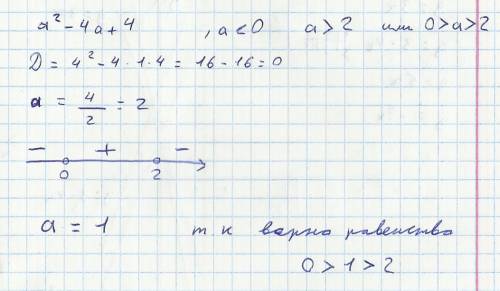 a² - 4a + 4 , a < 0 a > 2 или 0 > a > 2
D = 4² - 4 · 1 · 4 = 16 - 16 = 0
a = 4/2 = 2
- + -
0 2
a = 1 т.к верно равенство
0 > 1 > 2